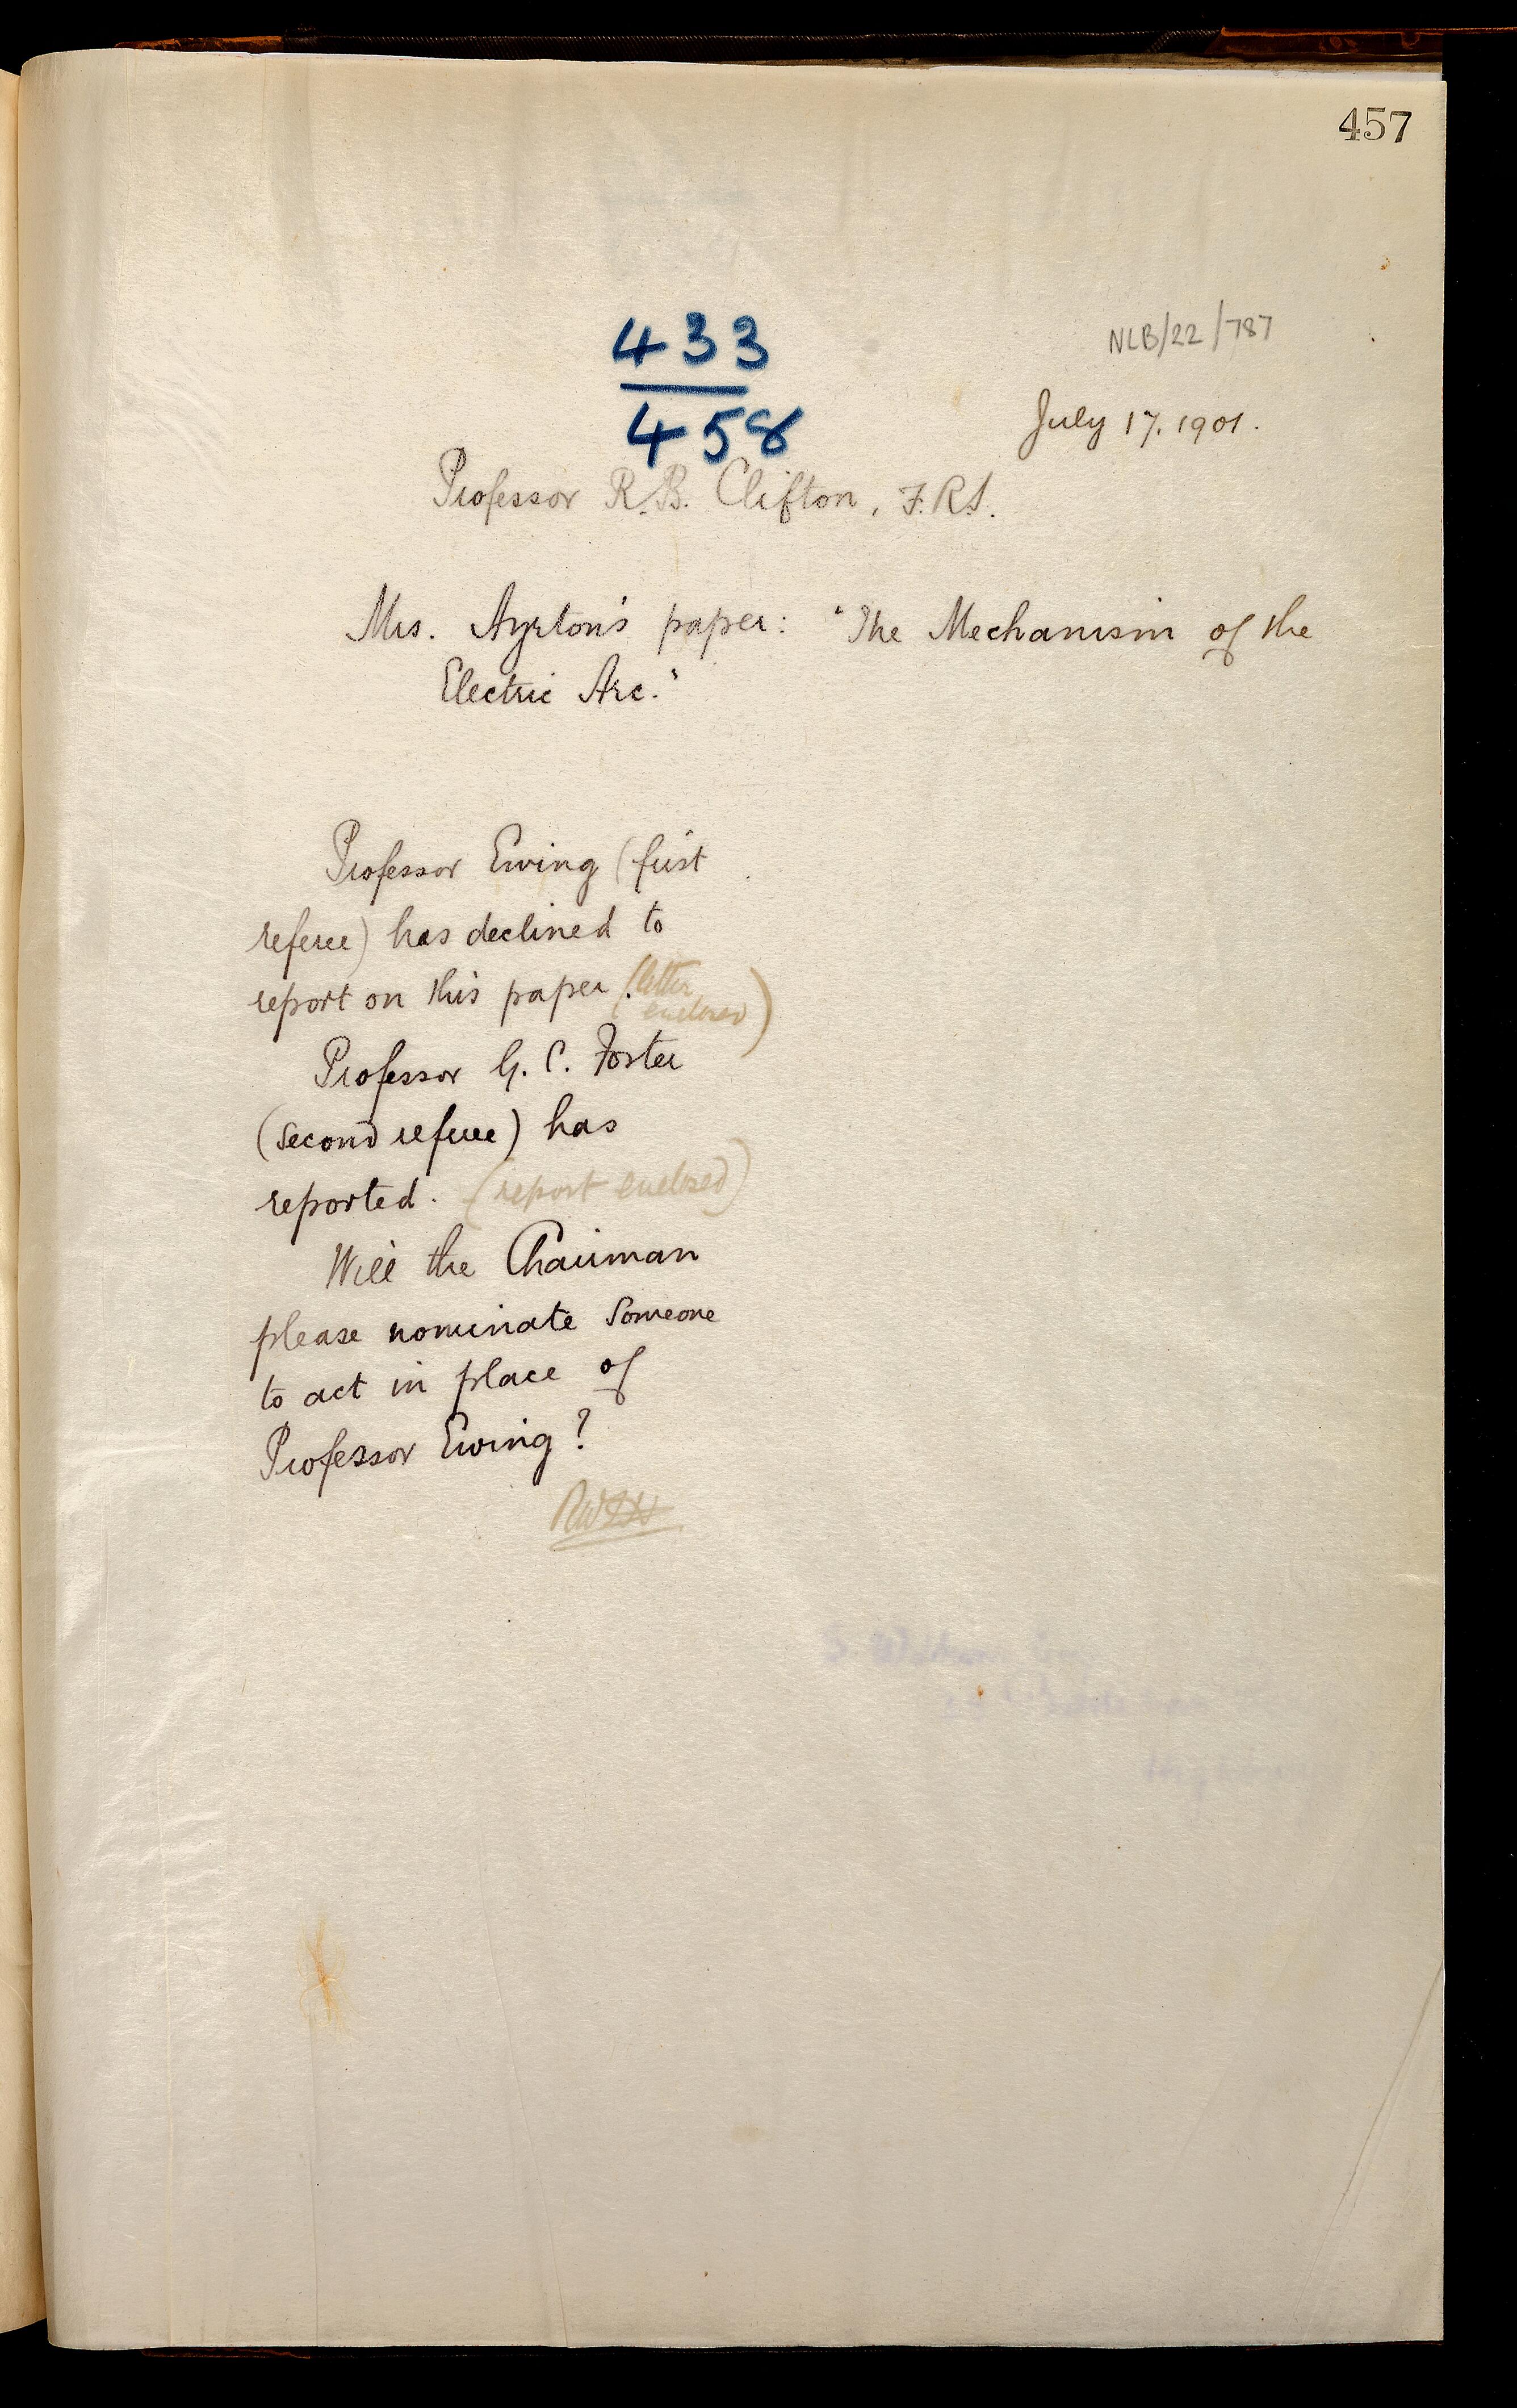 457
433
458
NLB/22/787
July 17. 1901.
Professor R.B. Clifton, F.R.S.
Mrs. Ayrton's paper: "The Mechanism of the
Electric Arc."
Professor Ewing (first
referee) has declined to
report on this paper. (letter
enclosed)
Professor G. C. Foster
(second referee) has
reported. (report enclosed)
Will the Chairman
please nominate someone
to act in place of
Professor Ewing?